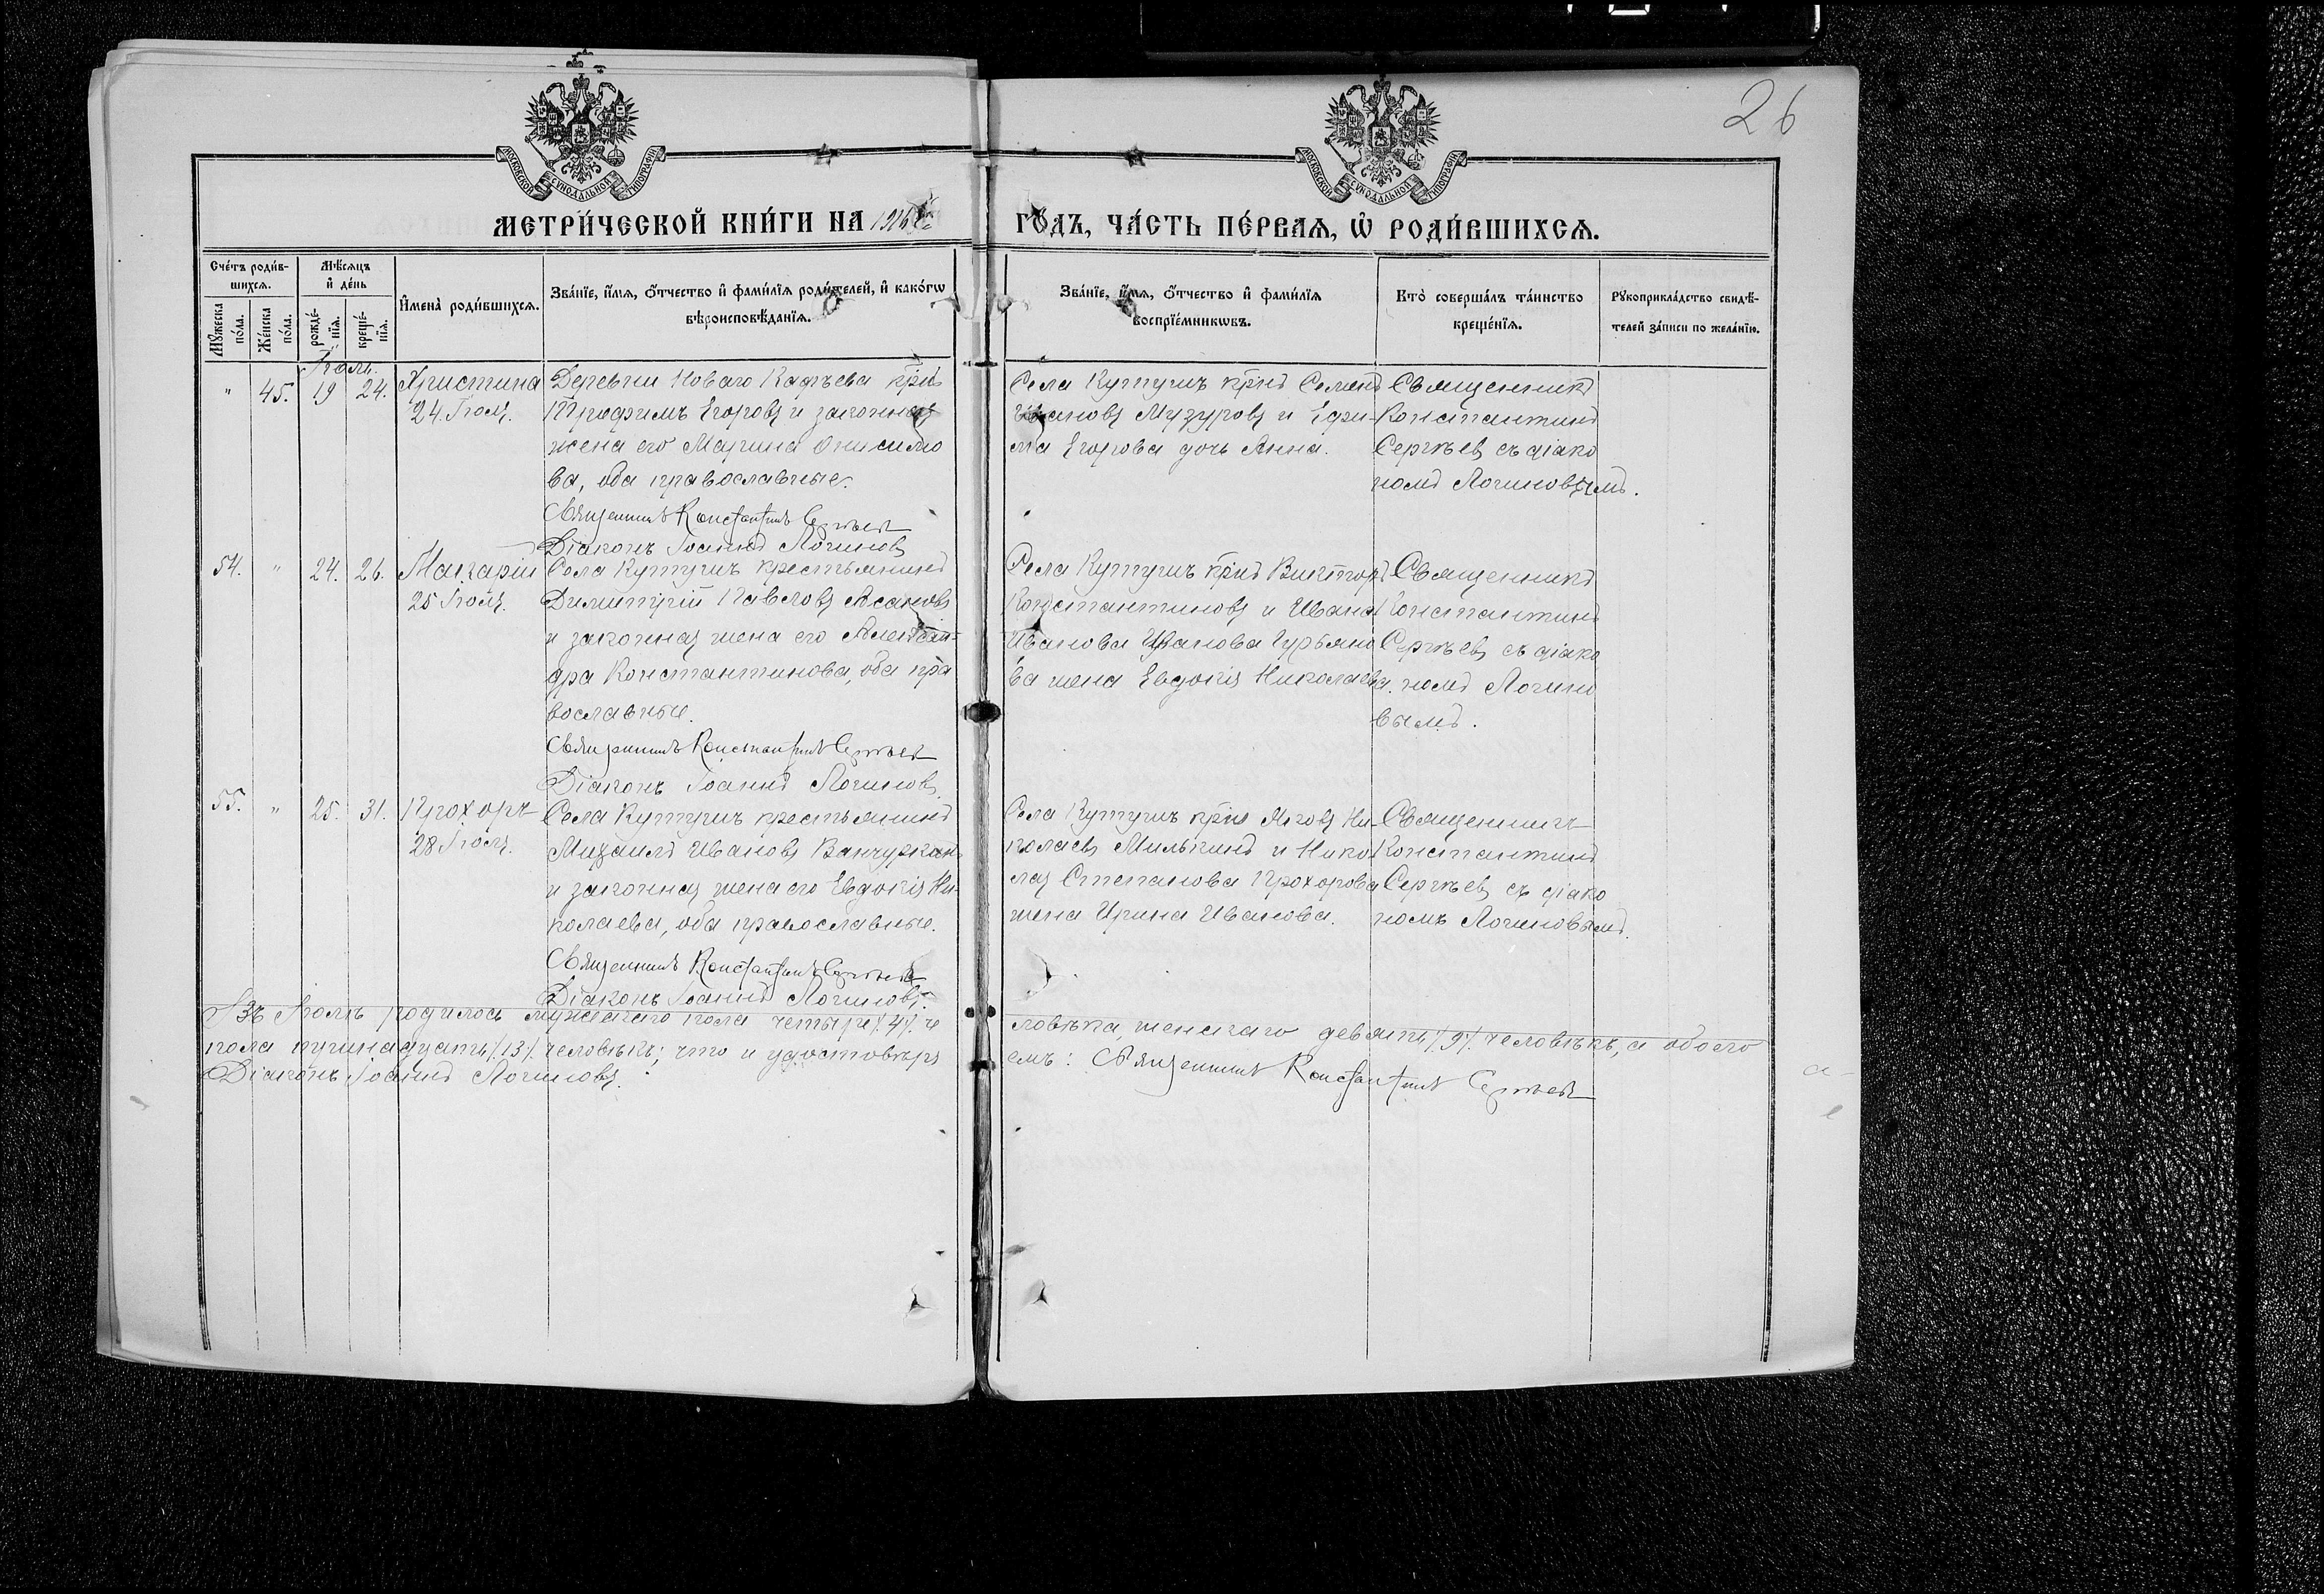 26
МОСКОВСКОЙ СѴНОДАЛЬНОЙ ТИПОГРАФІИ
МОСКОВСКОЙ СѴНОДАЛЬНОЙ ТИПОГРАФІИ
МЕТРИ́ЧЕСКОЙ КНИ́ГИ НА 1916
ГО́ДЪ, ЧА́СТЬ ПЕ́РВАЯ, Ѡ҆ РОДИ́ВШИХСЯ.
Сче́тъ роди́в-
шихся.
Мѣ́сяцъ
и҆ де́нь
Мꙋ́жеска по́ла.
Же́нска по́ла.
рожде́-
нїя.
креще́-
нїя.
И҆мена̀ роди́вшихся.
Зва́нїе, и҆́мя, ѻ҆́тчество и҆ фами́лїя роди́телей, и҆ како́гѡ
вѣроисповѣ́данїя.
Зва́нїе, и҆́мя, ѻ҆́тчество и҆ фами́лїя
воспрїе́мникѡвъ.
Кто̀ соверша́лъ та́инство
креще́нїя.
Рꙋкоприкла́дство свидѣ́-
телей за́писи по жела́нїю.
Іюль.
" 45. 19 24. Христина
24 Іюля.
Деревни Новаго Кадѣева крнъ
Трофимъ Егоровъ и законная
жена его Марина Онисимо
ва, оба православные.
Священникъ Константинъ Сергѣевъ
Діаконъ Іоаннъ Логиновъ
Села Кутушъ крнъ Семенъ
Ивановъ Музуровъ и Ефи-
ма Егорова дочь Анна.
Священникъ
Константинъ
Сергѣевъ съ діако
номъ Логиновымъ.
54. " 24. 26. Макарій
25 Іюля.
Села Кутушъ крестьянинъ
Димитрій Павловъ Исаковъ
и законная жена его Алексан-
дра Константинова, оба пра
вославные.
Священникъ Константинъ Сергѣевъ
Діаконъ Іоаннъ Логиновъ.
Села Кутушъ крнъ Викторъ
Константиновъ и Ивана
Иванова Иванова Гурьяно
ва жена Евдокія Николаева.
Священникъ
Константинъ
Сергѣевъ съ діако
номъ Логино
вымъ.
55. " 25. 31. Прохоръ
28 Іюля.
Села Кутушъ крестьянинъ
Михаилъ Ивановъ
и законная жена его Евдокія Ни-
колаева, оба православные.
Священникъ Константинъ Сергѣевъ
Діаконъ Іоаннъ Логиновъ.
Села Кутушъ крнъ Яковъ Ни-
колаевъ Милькинъ и Нико
лая Степанова Прохорова
жена Ирина Иванова.
Священникъ
Константинъ
Сергѣевъ съ діако
номъ Логиновымъ.
Въ Іюлѣ родилось мужскаго пола четыре /4/ че
ловѣка, женскаго девять /9/ человѣкъ, а обоего
пола тринадцать /13/ человѣкъ; что и удостовѣря
емъ: Священникъ Константинъ Сергѣевъ
Діаконъ Іоаннъ Логиновъ.